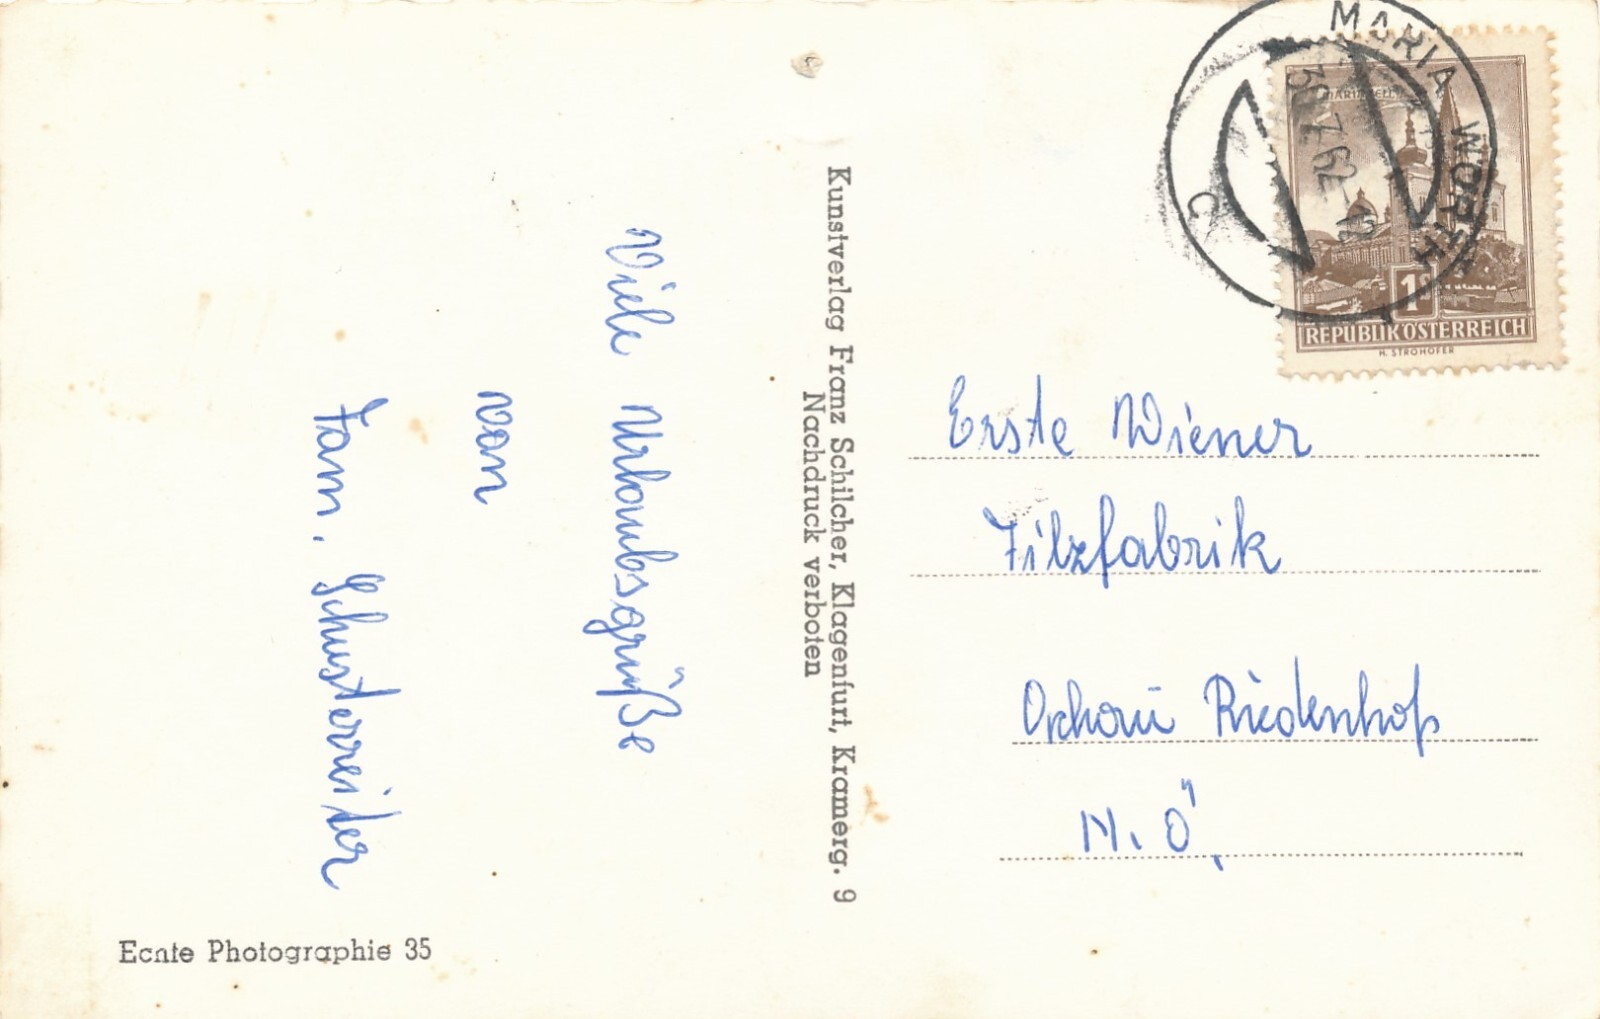 Viele Urlaubsgrüße
von
Fam. Schusterreiter
Echte Photographie 35
Kunstverlag Franz Schilcher, Klagenfurt, Kramerg. 9
Nachdruck verboten
MARIA WÖRTH
30.7.62-12
C
MARIAZELL
1S
REPUBLIK ÖSTERREICH
H. STROHOFER
Erste Wiener
Filzfabrik
Riedenhof
N.Ö.